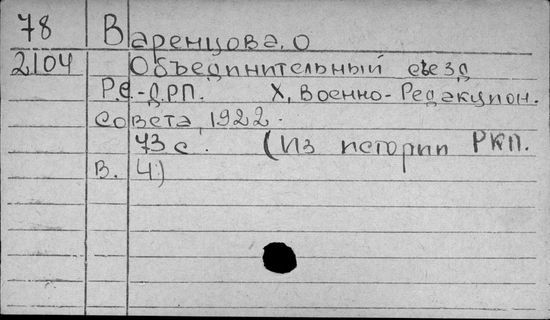 78 Варенцова. О
2104 Объединительный съезд
Р.С.-Д.РП. Х, Военно-Редакцион.
Совета, 1922.
73 с. (Из истории РКП.
В. 4)